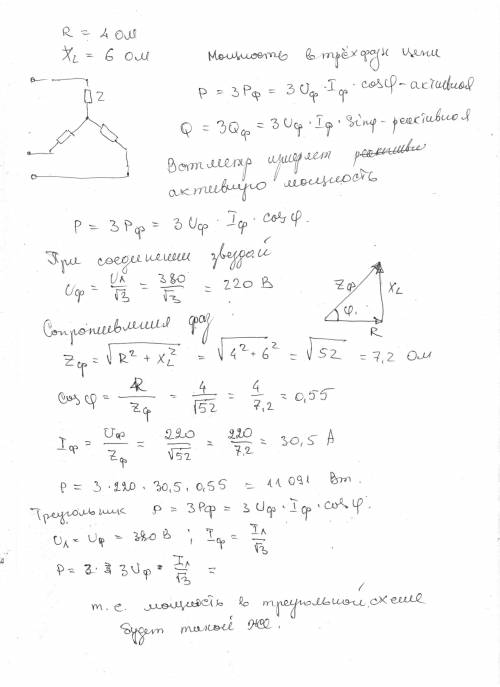 R = 4 Ом
XL = 6 Ом
Мощность в трёхфазн цепи
Z
P = 3Pф = 3 Uф · Iф · cosφ - активная
Q = 3Qф = 3Uф · Iф · Sinφ - реактивная
Ваттметр измеряет
активную мощность
P = 3 Pф = 3 Uф · Iф · cos φ.
При соединении звездой
Uф = Uл/√3 = 380/√3 = 220 В
Zф XL
φ.
R
Сопротивления фаз
Zф = √R² + XL² = √4² + 6² = √52 = 7,2 Ом
Cos φ = R/Zф = 4/√52 = 4/7,2 = 0,55
Iф = Uф/Zф = 220/√52 = 220/7,2 = 30,5 А
P = 3 · 220 · 30,5 · 0,55 = 11 091 Вт.
Треугольник P = 3Pф = 3 Uф · Iф · cos φ.
Uл = Uф = 380 В ; Iф = Iл/√3
P = 3 Uф · Iл/√3 =
т. е. мощность в треугольной схеме
будет такой же.